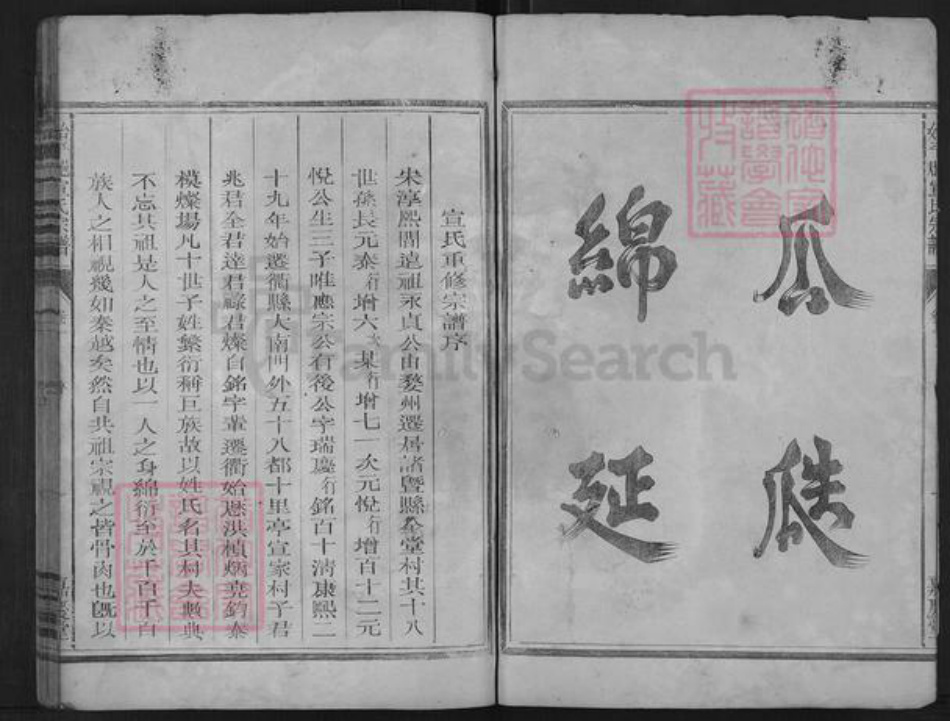 瓜瓞
綿延
宣氏重修宗譜序
宋淳熙間遠祖永貞公由婺州遷居諸暨縣金堂村其十八
世孫長元泰行增六次某行增七一次元悅行增百十二元
悅公生三子唯應宗公有後公字瑞慶行銘百十清康熙二
十九年始遷衢縣大南門外五十八都十里亭宣家村子君
兆君全君達君祿君燦自銘字輩遷衢始應洪楨炳堯鈞泰
模燦場凡十世子姓繁衍稱巨族故以姓氏名其村夫數典
不忘其祖是人之至情也以一人之身綿衍至於千百千百
族人之相視幾如秦越矣然自共祖宗視之皆骨肉也既以
宣氏宗譜
FamilySearch